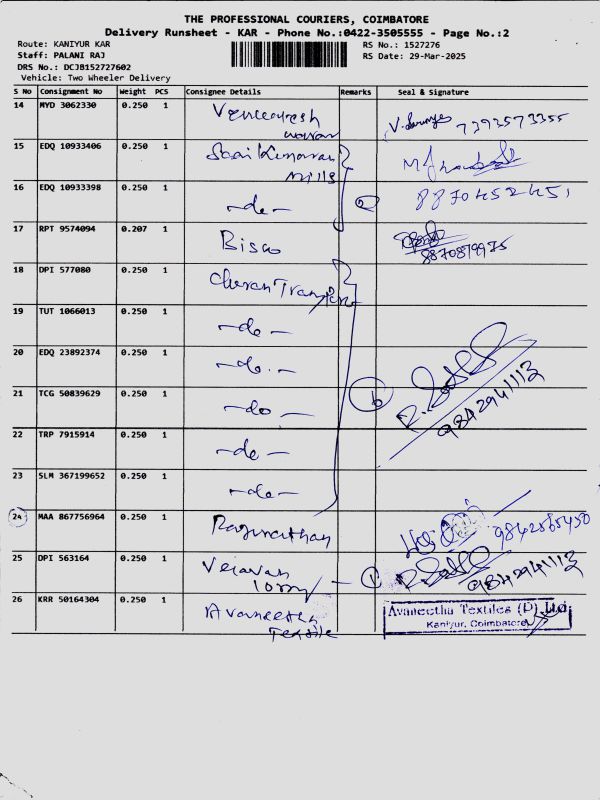 THE PROFESSIONAL COURIERS, COIMBATORE
Delivery Runsheet - KAR - Phone No.:0422-3505555 - Page No.:2
Route: KANIYUR KAR
RS No.: 1527276
Staff: PALANI RAJ
RS Date: 29-Mar-2025
DRS No.: DCJB152727602
Vehicle: Two Wheeler Delivery
S No Consignment No Weight PCS Consignee Details Remarks Seal & Signature
14 MYD 3062330 0.250 1 7393573355
15 EDQ 10933406 0.250 1 Mills
16 EDQ 10933398 0.250 1 -do- 2 8870452451
17 RPT 9574094 0.207 1 Bisco 8870879975
18 DPI 577080 0.250 1 Cheran Transport
19 TUT 1066013 0.250 1 -do-
20 EDQ 23892374 0.250 1 -do-
21 TCG 50839629 0.250 1 -do- 6 9842941113
22 TRP 7915914 0.250 1 -do-
23 SLM 367199652 0.250 1 -do-
24 MAA 867756964 0.250 1 Ragunathan 9842565450
25 DPI 563164 0.250 1 lorry - 1 9842941113
26 KRR 50164304 0.250 1 Avaneetha Textile
Avaneetha Textiles (P) Ltd
Kaniyur, Coimbatore